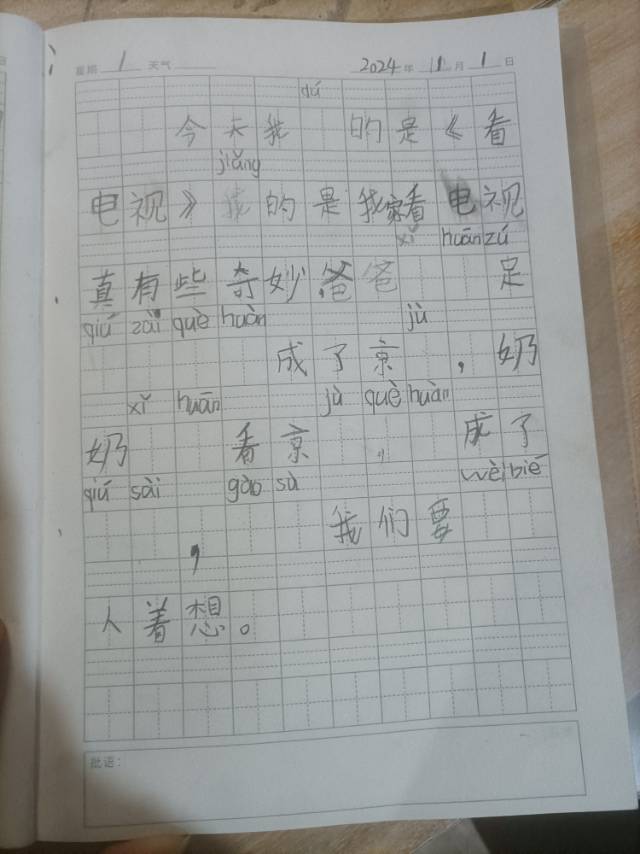 星期 1 天气 2024年 11月 1日
dú
今天我 的是《看
jiǎng
电视》我的是我家看电视
xǐ huān zú
真有些奇妙爸爸 足
qiú zài què huàn jù
成了京 ，奶
xǐ huān jù què huàn
奶 看京 ，成了
qiú sài gào sù wèi bié
， 我们要
人着想。
批语：